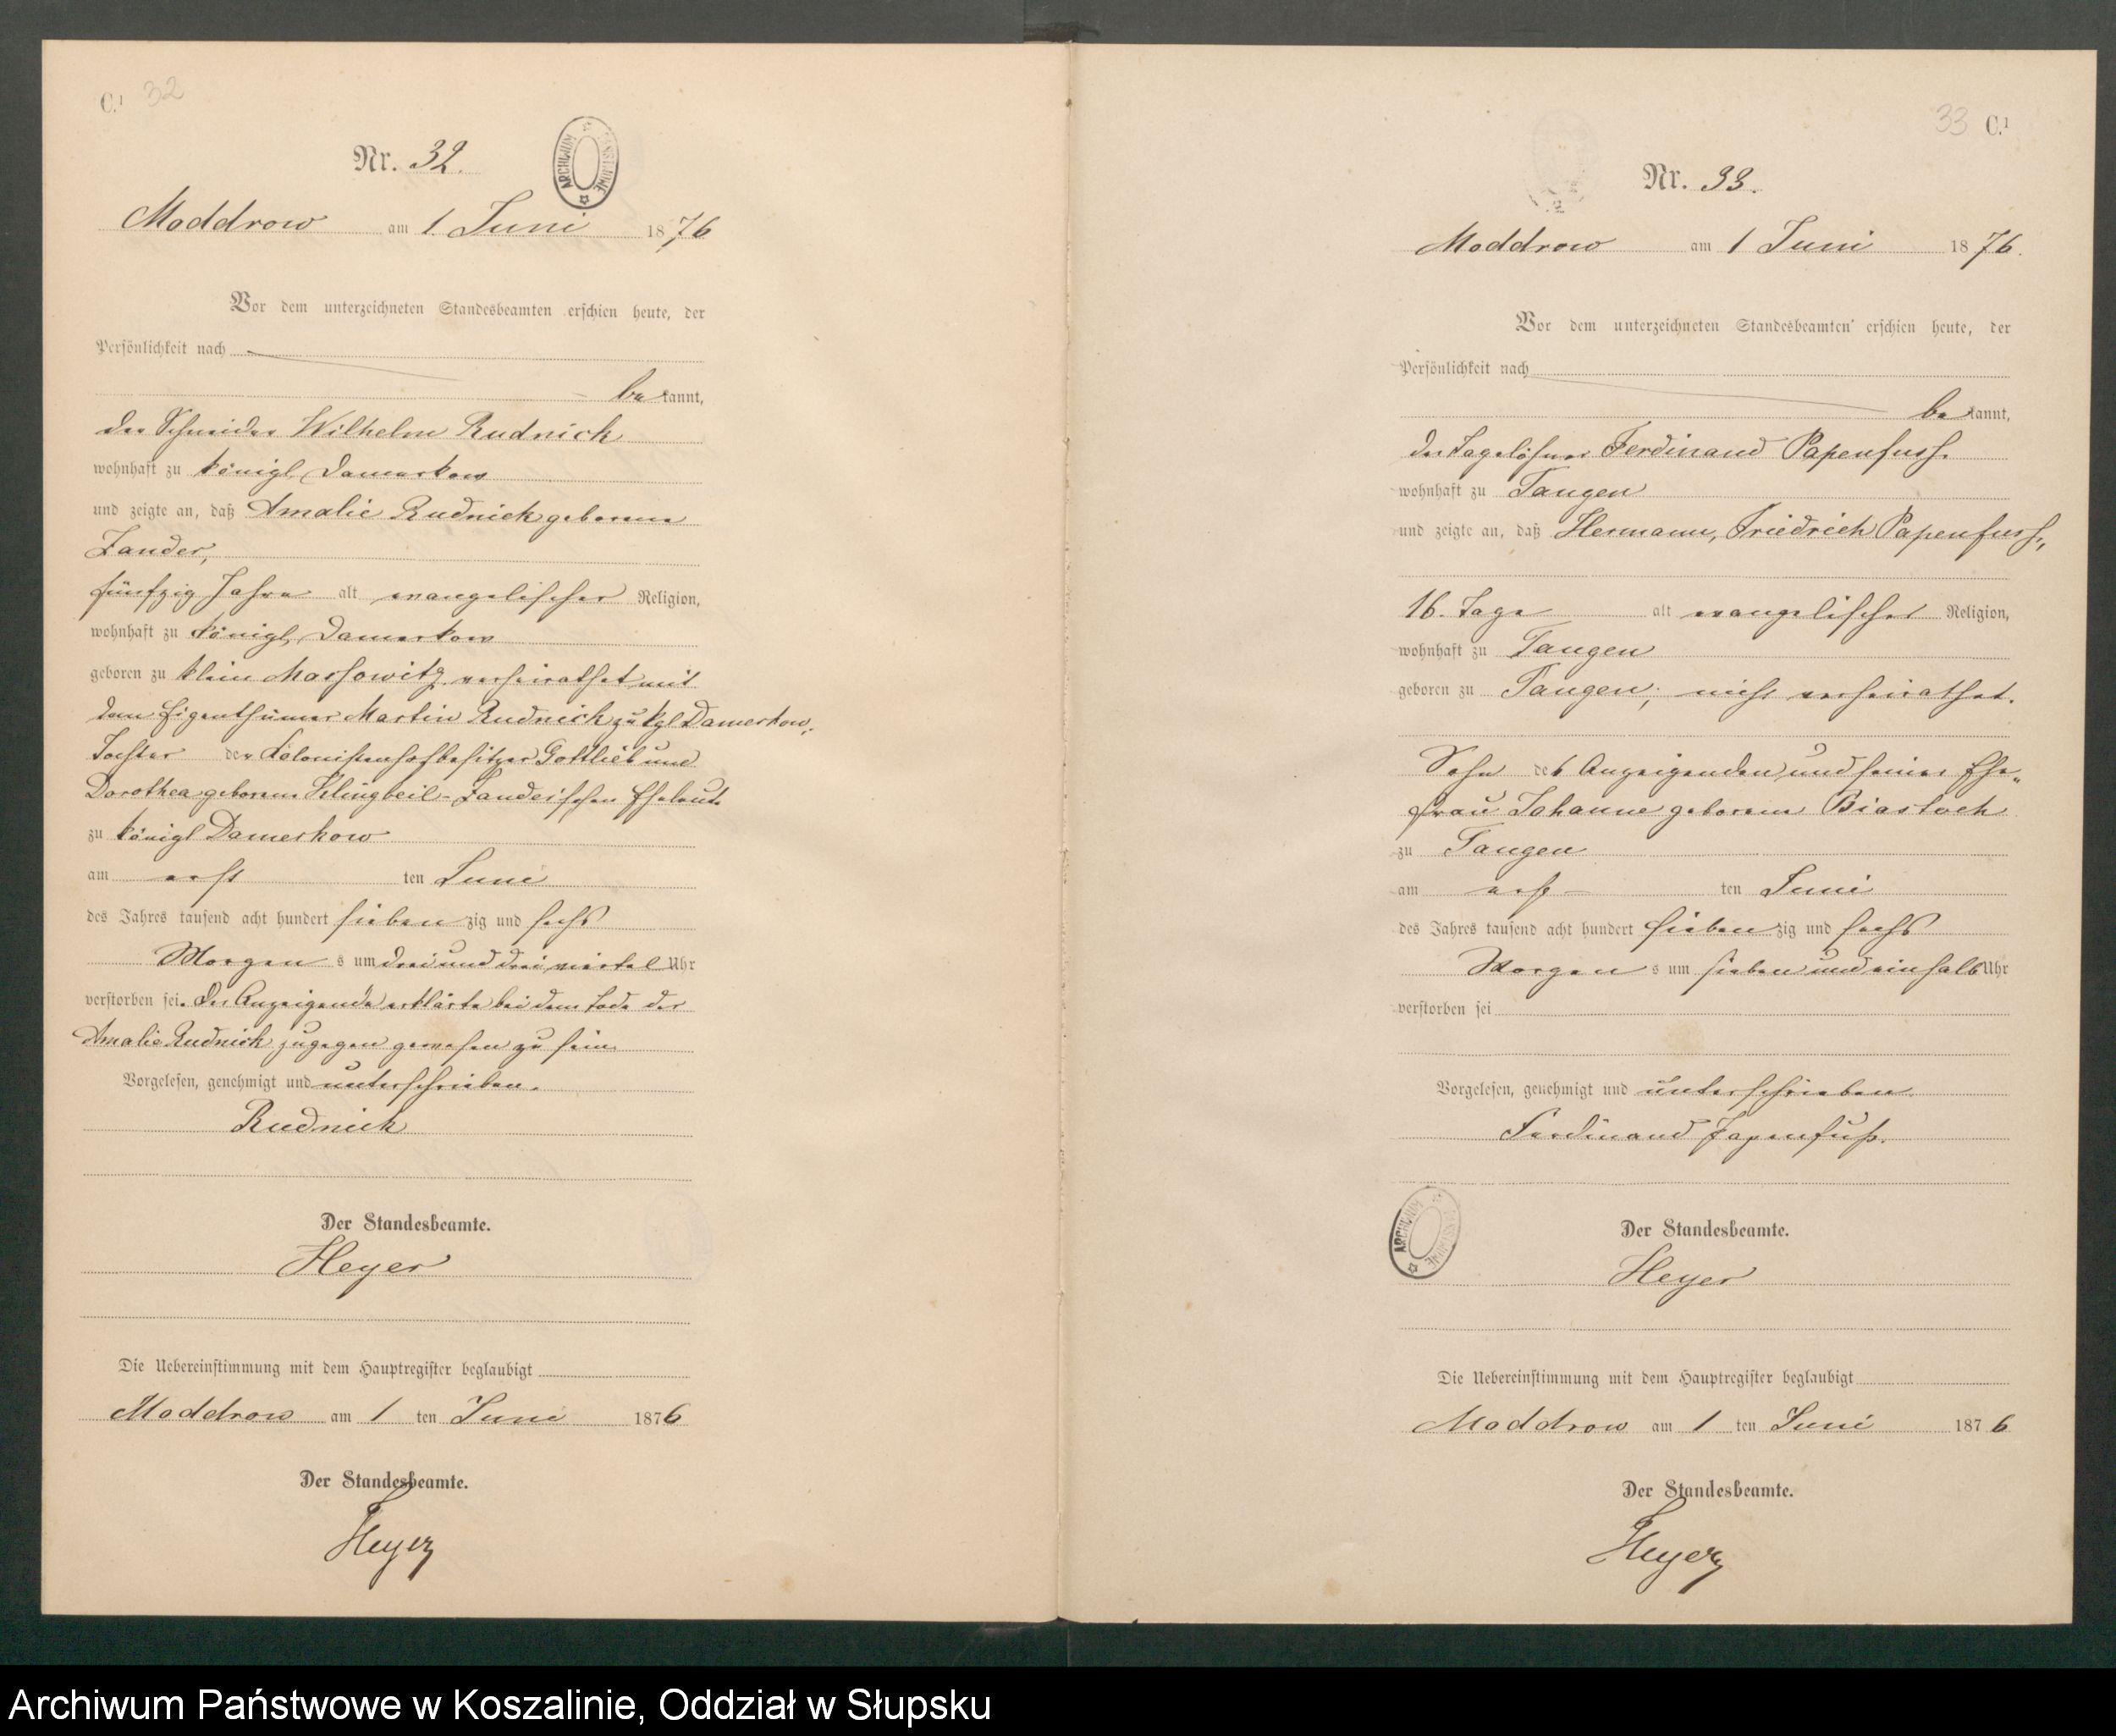 C.¹ 32
Nr. 32.
ARCHIWUM PAŃSTWOWE
Moddrow am 1. Juni 1876
Vor dem unterzeichneten Standesbeamten erschien heute, der
Persönlichkeit nach
bekannt,
der Schneider Wilhelm Rudnick
wohnhaft zu königl. Damerkow
und zeigte an, daß Amalie Rudnick geborene
Zander,
fünfzig Jahre alt evangelischer Religion,
wohnhaft zu königl. Damerkow
geboren zu klein Massowitz verheirathet mit
dem Eigenthümer Martin Rudnick zu kgl Damerkow,
Tochter der Kolonistenhofbesitzer Gottlieb und
Dorothea geborene Klingbeil-Zanderschen Eheleute
zu königl Damerkow
am erst ten Juni
des Jahres tausend acht hundert siebenzig und sechs
Morgens um drei und drei viertel Uhr
verstorben sei. Der Anzeigende erklärte bei dem Tode der
Amalie Rudnick zugegen gewesen zu sein.
Vorgelesen, genehmigt und unterschrieben.
Rudnick
Der Standesbeamte.
Heyer
Die Uebereinstimmung mit dem Hauptregister beglaubigt
Moddrow am 1 ten Juni 1876
Der Standesbeamte.
Heyer
33 C.¹
Nr. 33.
Moddrow am 1 Juni 1876.
Vor dem unterzeichneten Standesbeamten erschien heute, der
Persönlichkeit nach
bekannt,
der Tagelöhner Ferdinand Papenfuss
wohnhaft zu Tangen
und zeigte an, daß Hermann, Friedrich Papenfuss,
16. Tage alt evangelischer Religion,
wohnhaft zu Tangen
geboren zu Tangen, nicht verheirathet.
Sohn des Anzeigenden und seiner Ehe-
frau Johanne geborene Biastoch
zu Tangen
am erst ten Juni
des Jahres tausend acht hundert siebenzig und sechs
Morgens um sieben und einhalb Uhr
verstorben sei
Vorgelesen, genehmigt und unterschrieben
Ferdinand Papenfuß.
ARCHIWUM PAŃSTWOWE
Der Standesbeamte.
Heyer
Die Uebereinstimmung mit dem Hauptregister beglaubigt
Moddrow am 1 ten Juni 1876
Der Standesbeamte.
Heyer
Archiwum Państwowe w Koszalinie, Oddział w Słupsku